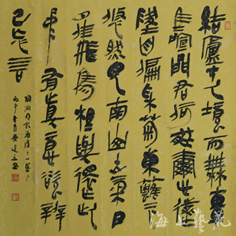 結廬在人境而無車
馬喧問君何能爾心遠
地自偏采菊東籬下
悠然見南山山氣日
夕佳飛鳥相與還此
中有真意欲辨
已忘言
海上藝